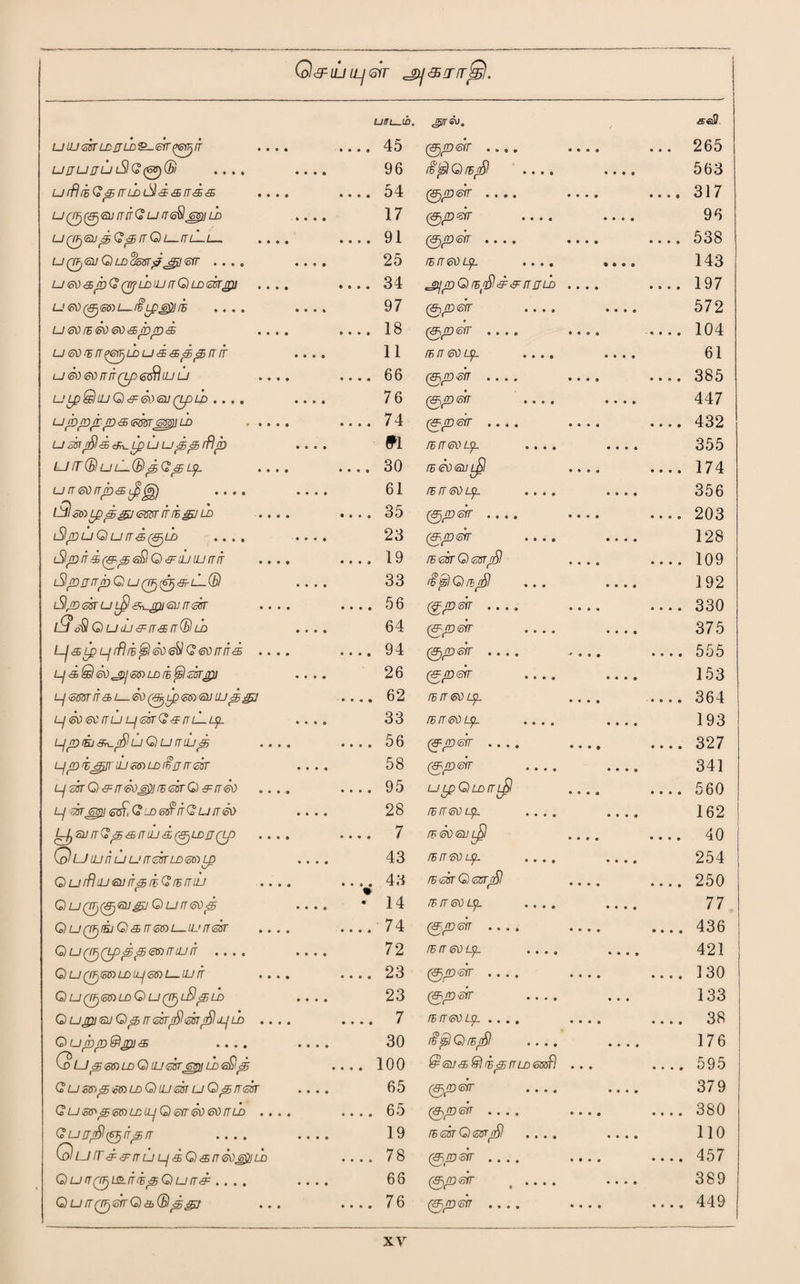 செய்யுள் அகராதி.
பாடம். நூல். கவி.
பயன்மரம்உள்ளூர் .... .... 45 குறள் .... .... 265
பரபரப்பினோடு .... .... 96 நீதிநெறி .... .... 563
பரிந்தோம்பிக்காக்க .... .... 54 குறள் .... .... 317
பருகுவார்போலினும் .... 17 குறள் .... .... 96
பருவத்தோடொட்ட .... .... 91 குறள் .... .... 538
பருவமெண்ணாது .... .... 25 நாலடி .... .... 143
பலகற்றேமியாமென்று .... .... 34 அறநெறிச்சாரம் .... .... 197
பலகுடைநீழலும் .... .... 97 குறள் .... .... 572
பலநல்லகற்றக .... .... 18 குறள் .... .... .... 104
பலநாளும்பக்கத்தார் .... 11 நாலடி .... .... 61
பல்லார்முனியப் .... .... 66 குறள் .... .... .... 385
பழகியசெல்வமும் .... .... 76 குறள் .... .... 447
பற்றற்றகண்ணும் .... .... 74 குறள் .... .... .... 432
பன்றிக்கூழ்ப்பத்தரிற் .... 81 நாலடி .... .... 355
பாடுபட்டுத்தேடி .... .... 30 நல்வழி .... .... 174
பாலாற்கழீஇ .... .... 61 நாலடி .... .... 356
பிழைத்துணர்ந்தும் .... .... 35 குறள் .... .... .... 203
பிறப்பொக்கும் .... .... 23 குறள் .... .... 128
பிறர்க்குதவிசெய்யார் .... .... 19 நன்னெறி .... .... 109
பிறராற்பெருஞ்சுட்டு .... 33 நீதிநெறி .... .... 192
பிறன்பழிகூறுவான் .... .... 56 குறள் .... .... .... 330
பீலிபெய்சாகாடும் .... 64 குறள் .... .... 375
புகழ்புரிந்தில்லிலோர்க .... .... 94 குறள் .... .... .... 555
புகழின்றால் .... 26 குறள் .... .... 153
புணர்கடல்சூழ்வையத்து .... 62 நாலடி .... .... 364
புல்லாப்புன்கோட்டி .... 33 நாலடி .... .... 193
புறங்கூறிப்பொய்த்து .... .... 56 குறள் .... .... .... 327
புறந்தூய்மைநீரான் .... 58 குறள் .... .... 341
புன்சொல்லுநன்சொல் .... .... 95 பழமொழி .... .... 560
புன்னுனிமேனீர்போல் .... 28 நாலடி .... .... 162
பூவாதேகாய்க்குமரமு .... .... 7 நல்வழி .... .... 40
பெயற்பால்மழை .... 43 நாலடி .... .... 254
பெரியவர்தந்நோய் .... .... 43 நன்னெறி .... .... 250
பெருகுவதுபோல .... 14 நாலடி .... .... 77
பெருங்கொடையான் .... .... 74 குறள் .... .... .... 436
பெருமுத்தரையர் .... .... 72 நாலடி .... .... 421
பெருமையுடையார் .... .... 23 குறள் .... .... .... 130
பெருமைபெருமிதம் .... 23 குறள் .... ... 133
பெறுவதொன்றின்றியும் .... .... 7 நாலடி .... .... 38
பெற்றசிறுக .... .... 30 நீதிநெறி .... .... 176
பேதைமையென்னும்விதத் .... 100 சிவகசிந்தாமணி ... .... 595
பேதைமையென்பதொன் .... 65 குறள் .... .... 379
பேதைமையுளெல்லாம் .... .... 65 குறள் .... .... .... 380
பேரறிஞர்தா .... .... 19 நன்னெறி .... .... 110
பொச்சாப்புக்கொல்லும் .... 78 குறள் .... .... .... 457
பொருட்பொருளார் .... .... 66 குறள் .... .... 389
பொருள்கெடுத்து ... .... 76 குறள் .... .... .... 449
xv